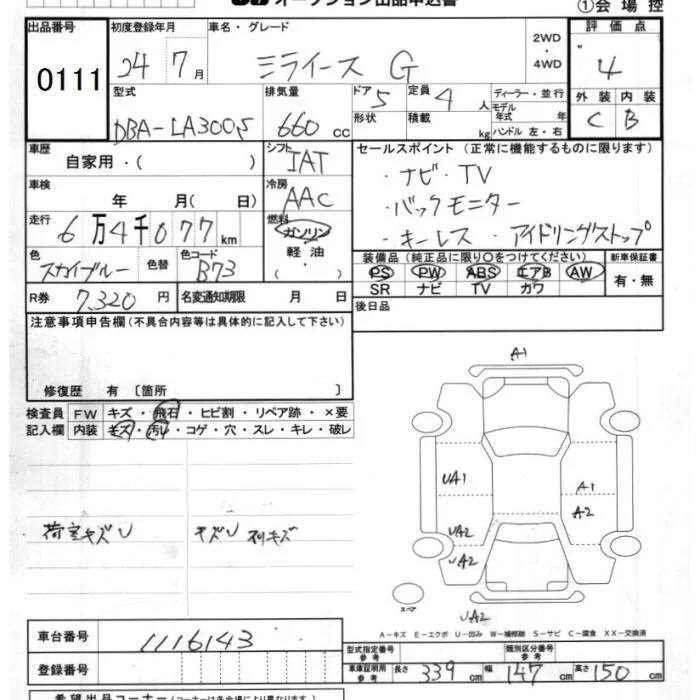 オークション出品申込書
①会場控
出品番号 初度登録年月 車名・グレード 2WD・4WD 評価点
0111 24 7月 ミライース G 4
型式 排気量 ドア 5 定員 4人 ディーラー・並行
モデル年式 年
外装 内装
DBA-LA300S 660cc 形状 積載 kg ハンドル 左・右 C B
車歴 自家用・( ) シフト IAT セールスポイント (正常に機能するものに限ります)
車検 年 月( 日) 冷房 AAC ・ナビ・TV
・バックモニター
走行 6万4千077km 燃料 ガソリン 軽油 ( ・ ) ・キーレス ・アイドリングストップ
色 スカイブルー 色替 色コード B73 装備品 (純正品に限り○をつけてください) 新車保証書
PS PW ABS エアB AW 有・無
SR ナビ TV カワ
R券 7,320円 名変通知期限 月 日 後日品
注意事項申告欄 (不具合内容等は具体的に記入して下さい)
修復歴 有 〔箇所 〕
検査員 FW キズ・飛石・ヒビ割・リペア跡・×要
記入欄 内装 キズ・汚レ・コゲ・穴・スレ・キレ・破レ
A1
UA1 A1
A2
荷室キズU キズU スリキズ UA2
UA2
スペア
UA2
A-キズ E-エクボ U-凹み W-補修跡 S-サビ C-腐食 XX-交換済
車台番号 1116143
型式指定番号 参考 類別区分番号 参考
登録番号 車庫証明用 参考 長さ 339cm 幅 147cm 高さ 150cm
希望出品コーナー (コーナーは各会場により異なります)